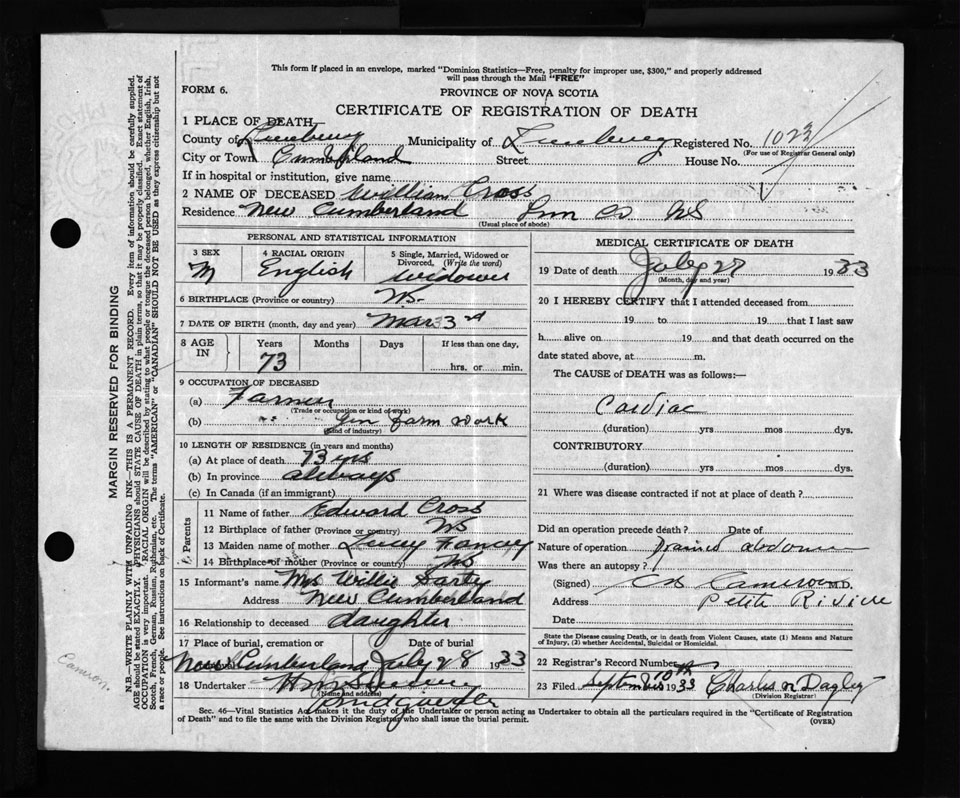 This form if placed in an envelope, marked "Dominion Statistics—Free, penalty for improper use, $300," and properly addressed
will pass through the Mail "FREE"
FORM 6.
PROVINCE OF NOVA SCOTIA
CERTIFICATE OF REGISTRATION OF DEATH
1 PLACE OF DEATH—
County of Lunenburg Municipality of Lunenburg Registered No. 1023
(For use of Registrar General only)
City or Town Cumberland Street House No.
If in hospital or institution, give name
2 NAME OF DECEASED William Cross
Residence New Cumberland Lun Co NS
(Usual place of abode)
PERSONAL AND STATISTICAL INFORMATION
3 SEX 4 RACIAL ORIGIN 5 Single, Married, Widowed or Divorced, (Write the word)
M English widower
6 BIRTHPLACE (Province or country) NS
7 DATE OF BIRTH (month, day and year) Mar 3rd
8 AGE IN Years Months Days If less than one day,
73 hrs. or min.
9 OCCUPATION OF DECEASED
(a) Farmer
(Trade or occupation or kind of work)
(b) Gen farm work
(Kind of industry)
10 LENGTH OF RESIDENCE (in years and months)
(a) At place of death 73 yrs
(b) In province always
(c) In Canada (if an immigrant)
Parents
11 Name of father Edward Cross
12 Birthplace of father (Province or country) NS
13 Maiden name of mother Lucy Fancey
14 Birthplace of mother (Province or country) NS
15 Informant's name Mrs Willis Sarty
Address New Cumberland
16 Relationship to deceased daughter
17 Place of burial, cremation or Date of burial
New Cumberland July 28 1933
18 Undertaker
(Name and address)
MEDICAL CERTIFICATE OF DEATH
19 Date of death July 27 1933
(Month, day and year)
20 I HEREBY CERTIFY that I attended deceased from
19 to 19 that I last saw
h alive on 19 and that death occurred on the
date stated above, at m.
The CAUSE of DEATH was as follows:—
Cardiac
(duration) yrs mos dys.
CONTRIBUTORY
(duration) yrs mos dys.
21 Where was disease contracted if not at place of death?
Did an operation precede death? Date of
Nature of operation
Was there an autopsy?
(Signed) Cameron M.D.
Address Petite Riviere
Date
State the Disease causing Death, or in death from Violent Causes, state (1) Means and Nature of Injury, (2) whether Accidental, Suicidal or Homicidal.
22 Registrar's Record Number
23 Filed September 10th 1933 Charles N Dagley
(Division Registrar)
Sec. 46—Vital Statistics Act makes it the duty of the Undertaker or person acting as Undertaker to obtain all the particulars required in the "Certificate of Registration
of Death" and to file the same with the Division Registrar who shall issue the burial permit.
(OVER)
MARGIN RESERVED FOR BINDING
N.B.—WRITE PLAINLY WITH UNFADING INK—THIS IS A PERMANENT RECORD. Every item of information should be carefully supplied.
AGE should be stated EXACTLY. PHYSICIANS should STATE CAUSE OF DEATH in plain terms, so that it may be properly classified. Exact statement of
OCCUPATION is very important. "RACIAL ORIGIN" will be described by stating to what people or tongue the deceased person belonged, whether English, Irish,
Scotch, French, German, Russian, Ruthenian, etc. The terms "AMERICAN" or "CANADIAN" SHOULD NOT BE USED as they express citizenship but not
a race or people. See instructions on back of Certificate.
Cameron.